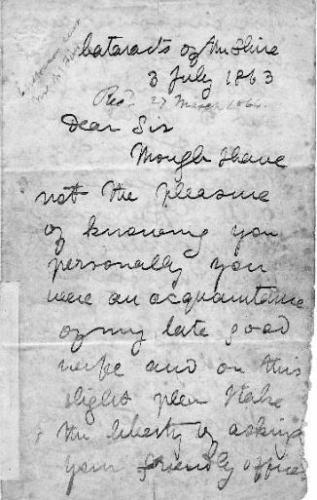 Cataracts of the Shire
3 July 1863
Recd. 27 March 1864
Dear Sir
Though I have
not the pleasure
of knowing you
personally you
were an acquaintance
of my late good
wife and on this
slight plea I take
the liberty of asking
your friendly offices